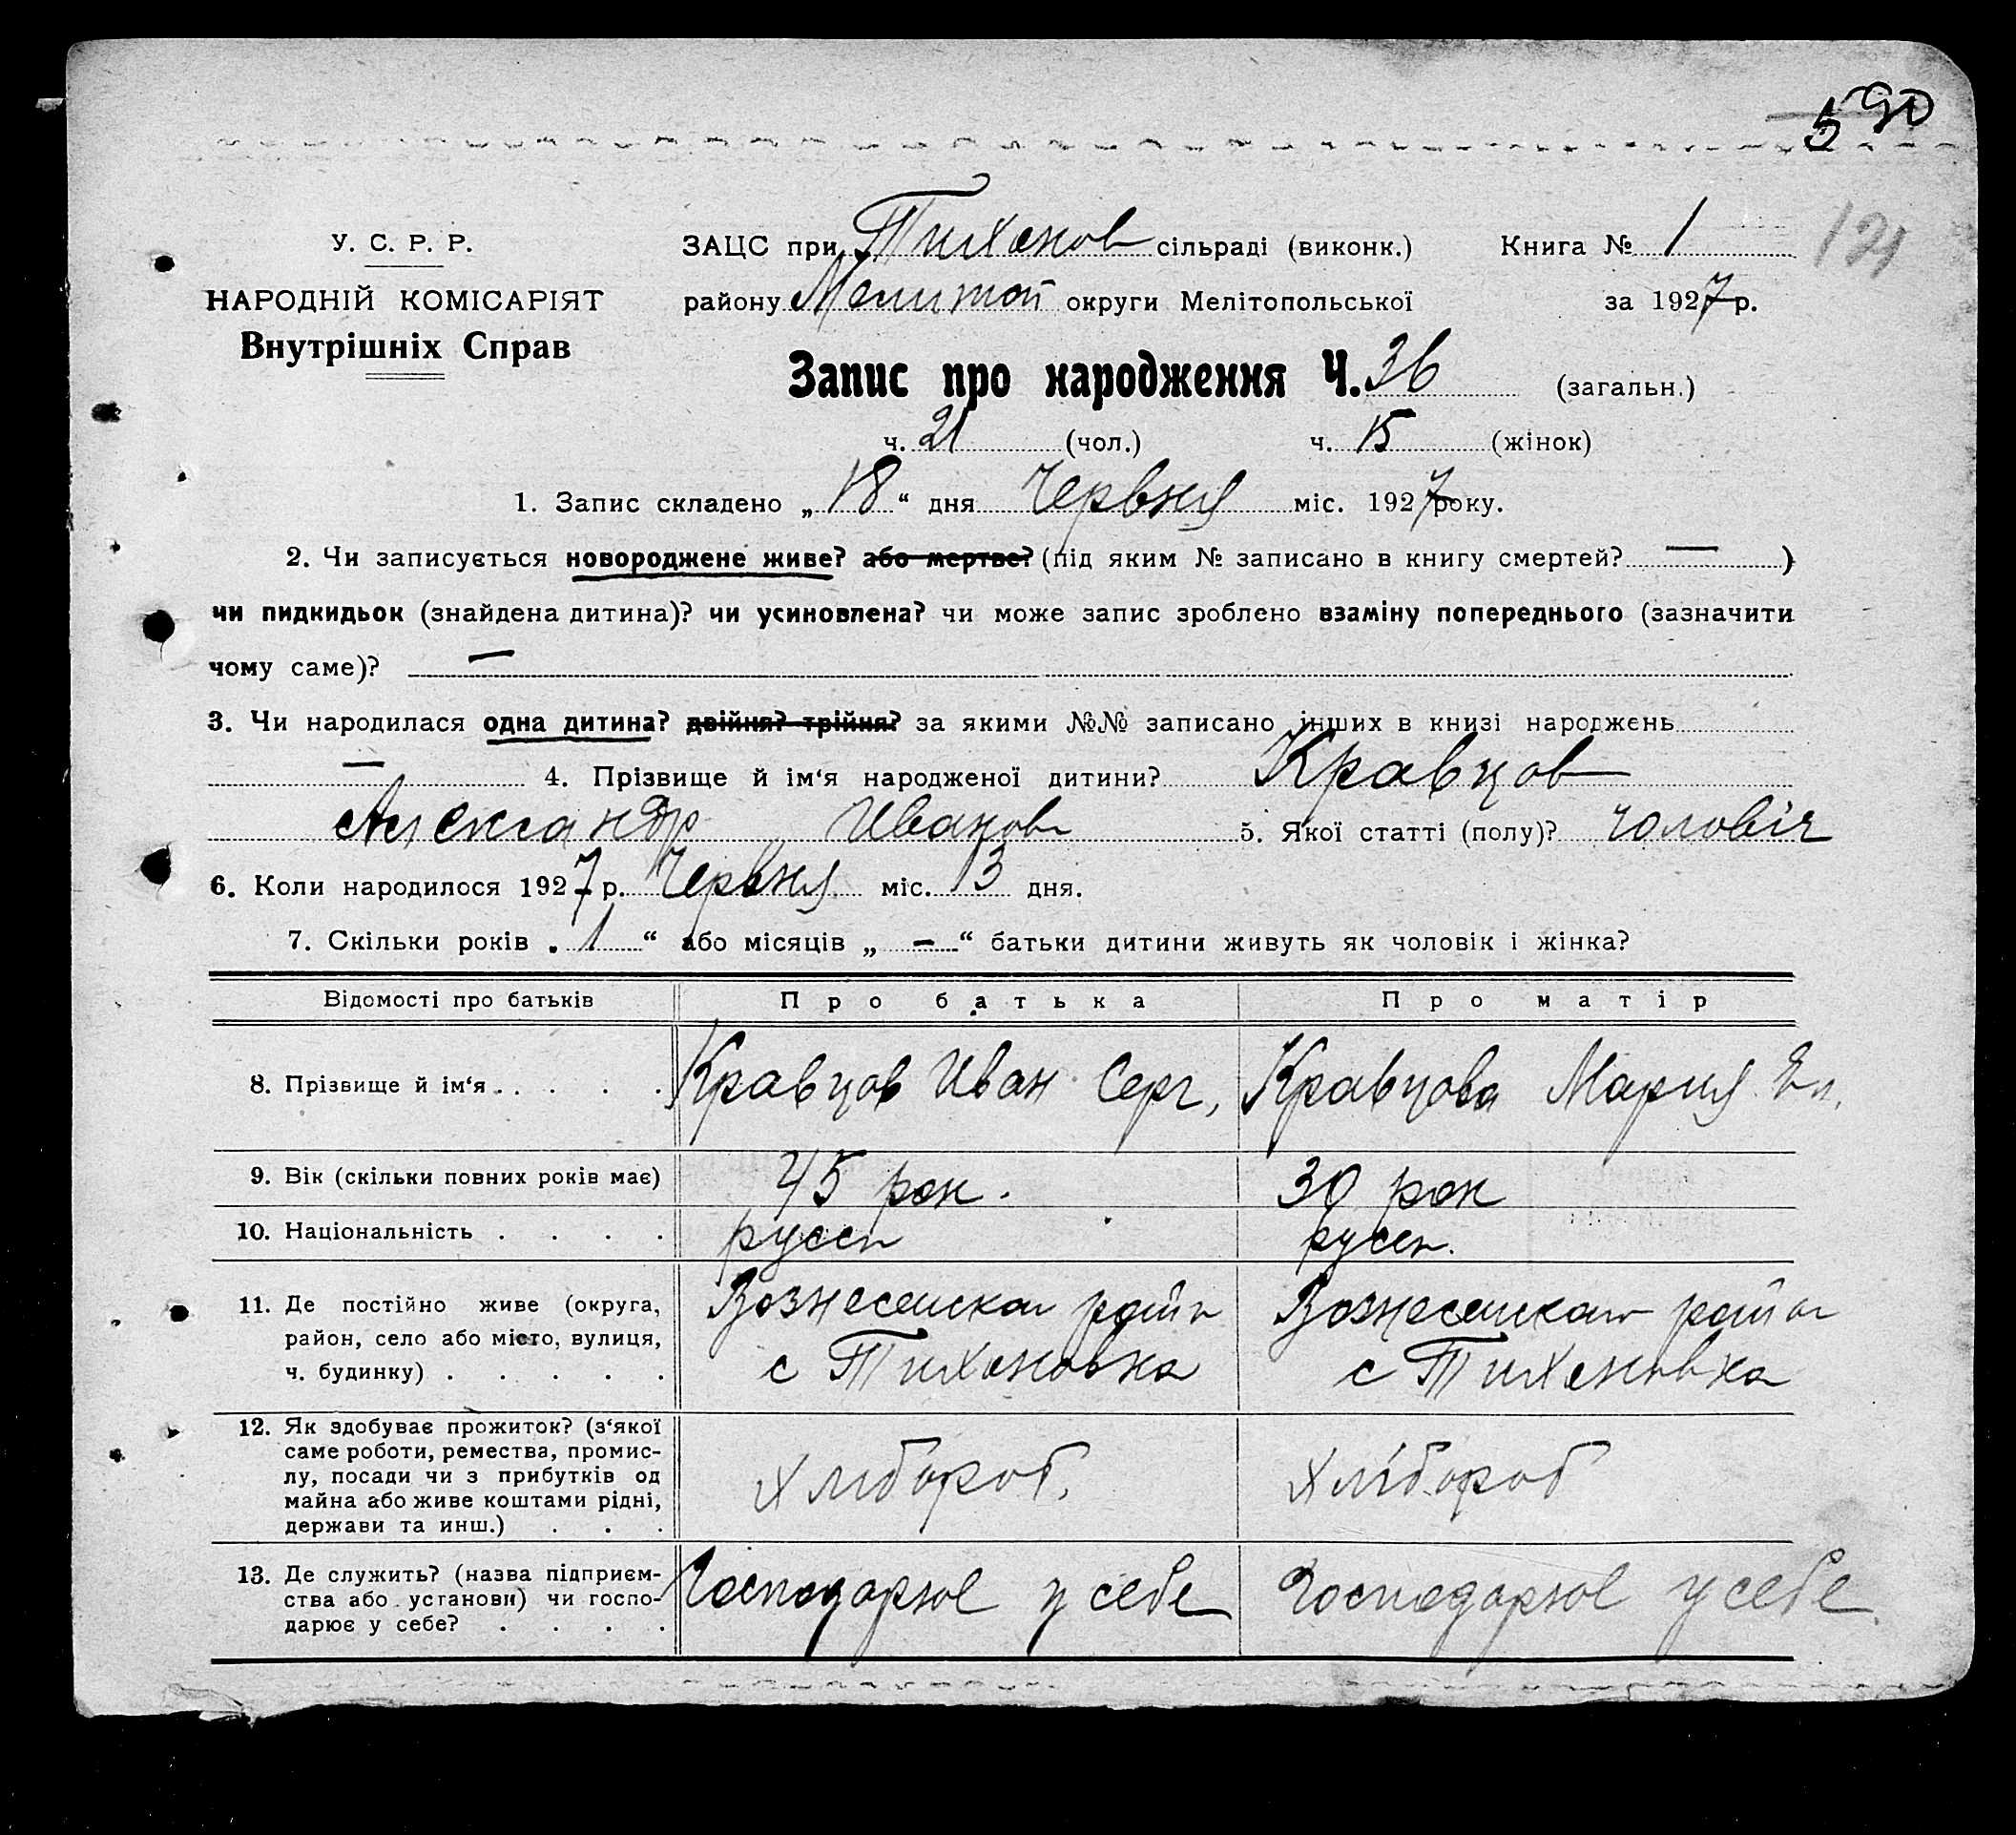 590
121
У. С. Р. Р.
НАРОДНІЙ КОМІСАРІЯТ
Внутрішніх Справ
ЗАЦС при Тихенов сільраді (виконк.) Книга № 1
району Мелитоп округи Мелітопольської за 1927 р.
Запис про народження Ч. 36 (загальн.)
ч. 21 (чол.) ч. 15 (жінок)
1. Запис складено „ 18 “ дня Червня міс. 1927 року.
2. Чи записується новороджене живе? або мертве? (під яким № записано в книгу смертей? — )
чи пидкидьок (знайдена дитина)? чи усиновлена? чи може запис зроблено взаміну попереднього (зазначити
чому саме)? —
3. Чи народилася одна дитина? двійня? трійня? за якими №№ записано інших в книзі народжень
— 4. Прізвище й ім‘я народженої дитини? Кравцов
Александр Иванов 5. Якої статті (полу)? чоловіч
6. Коли народилося 1927 р. Червня міс. 3 дня.
7. Скільки років „ 1 “ або місяців „ — “ батьки дитини живуть як чоловік і жінка?
Відомості про батьків Про батька Про матір
8. Прізвище й ім‘я . . . . . Кравцов Иван Серг, Кравцова Мария Ел.
9. Вік (скільки повних років має) 45 рок. 30 рок
10. Національність . . . . русск русск.
11. Де постійно живе (округа,
район, село або місто, вулиця,
ч. будинку) . . . . .
Вознесенскаи райн
с Тихеновка
Вознесенскаи район
с Тихеновка
12. Як здобуває прожиток? (з‘якої
саме роботи, ремества, промис-
лу, посади чи з прибутків од
майна або живе коштами рідні,
держави та инш.) . . .
Хлибороб. Хлібороб
13. Де служить? (назва підприєм-
ства або установи) чи госпо-
дарює у себе? . . . .
Господарює у себе Господарює у себе